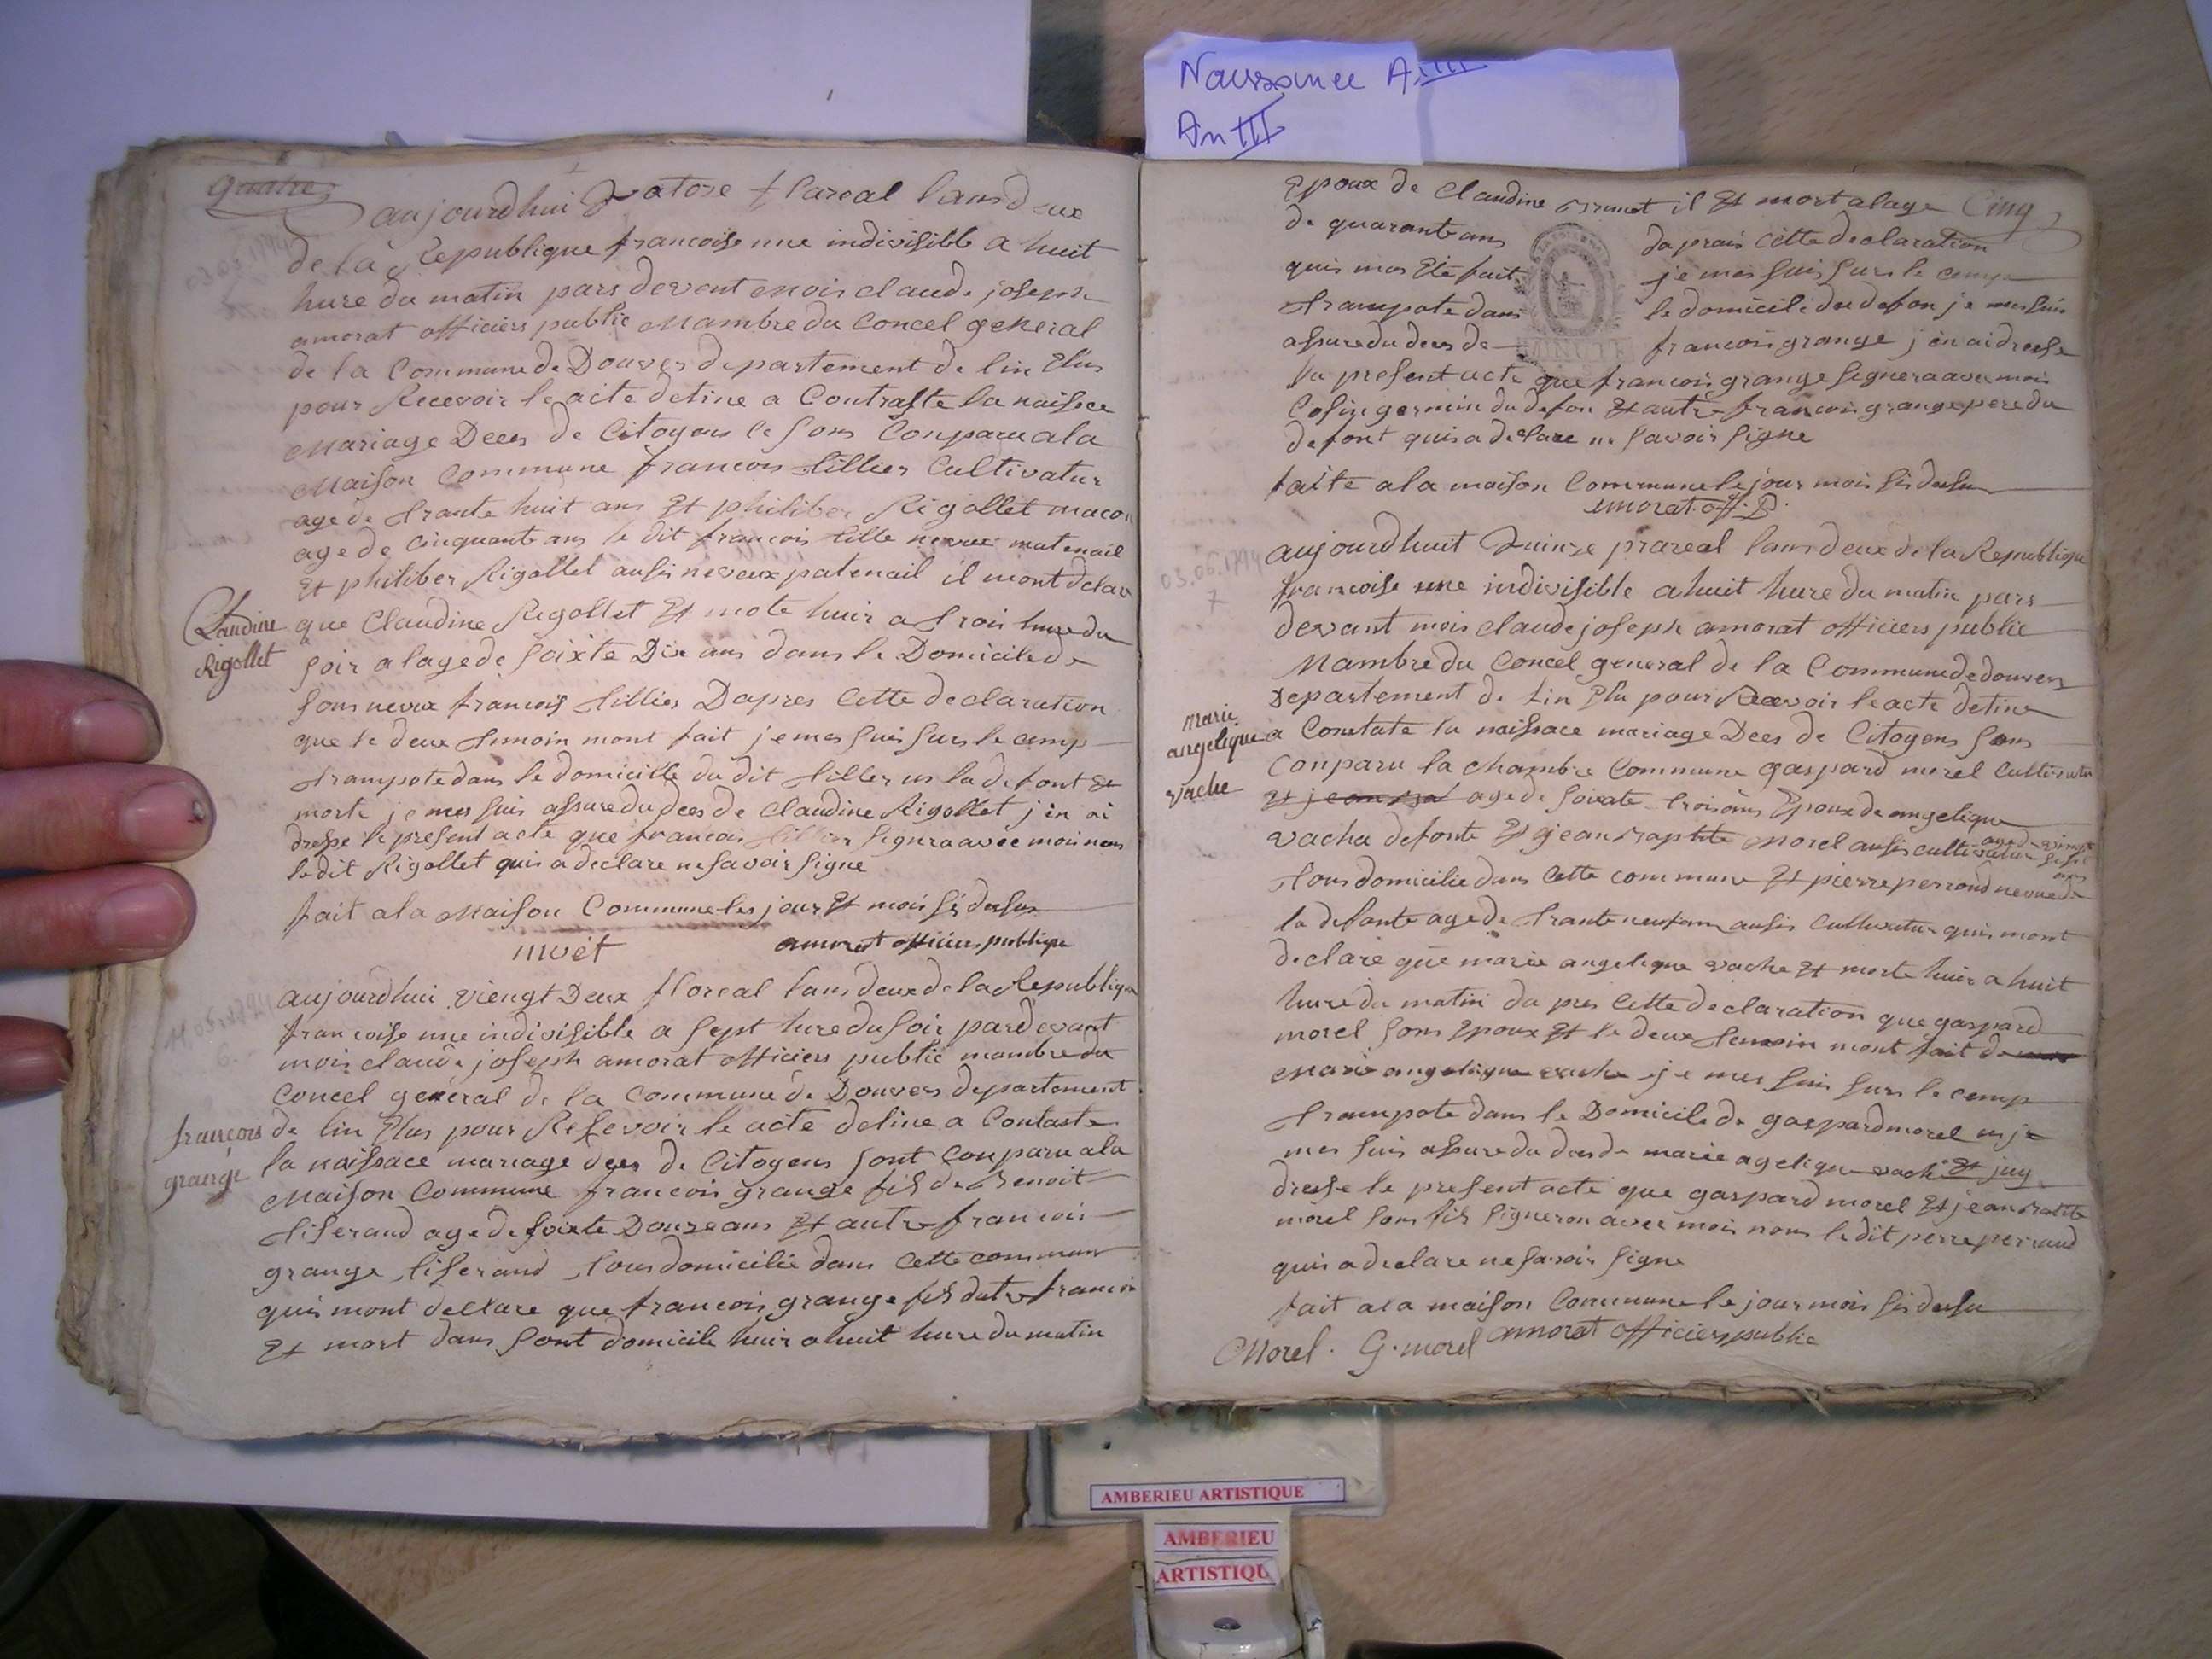 Naissance A. III
An III
quatre
aujourdhui quatose flareal lans deux
de la Republique francoise une indivisible a huit
hure du matin pars devent mois claude joseph
amorat officiers public mambre du Concel general
de la Commune de Douvres departement de lin Elus
pour Recevoir le acte detine a Contraste la naissce
Mariage Dees de Citoyens le sons Conparu a la
Maison Commune francois tillier Cultivatur
age de trante huit ans Et philiber Rigollet macon
age de cinquante ans le dit francois tille neveu matenail
Et philiber Rigollet ausis neveux patenail il mont delare
Claudine
Rigollet
que Claudine Rigollet Et mote huir a trois hure du
soir a lage de soixte Dix ans dans le Domicile de
sons neveu francois tillier Dapres Cette declaration
que le deux temoin mont fait je mes suis surs le camp
trampote dans le domicille du dit tiller us la defont Et
morte je mes suis assure du dees de Claudine Rigollet j en ai
dresse le present acte que francois tillier signera avec moi non
le dit Rigollet quis a declare ne savoir signe
fait a la Maison Commune les jour Et mois sis desus
amorat officier publique
aujourdhui viengt Deux floreal lans deux de la Republique
francoise une indivisible a sept hure du soir pardevant
mois claude joseph amorat officiers public mambre du
Concel general de la Commune de Douvres departement
francois
grange
de lin Elus pour Resevoir le acte detine a Contaste
la naissace mariage dees de Citoyens sont Conparu a la
Maison Commune francois grange fils de Benoit
tiserand age de soixte Douze ans Et autre francois
grange tiserand tous domicilie dans Cette commun
quis mont declare que francois grange fils dutre francois
Et mort dans sont domicile huir a huit hure du matin
Epoux de Claudine Brunet il Et mort a lage
Cinq
de quarante ans
da prais Cette declaration
quis mas Eté fait
je mes suis surs le camp
trampote dans
le domicile du defon je mes suis
assure du dees de
francois grange j en ai dresse
MINUTE
la present acte que francois grange signera avec mois
Cosin germin du defon Et autre francois grange pere du
defont quis a declare ne savoir signe
faite a la maison Commune le jour mois sis desus
amorat off. P.
aujourdhuit quinze prareal lans deux de la Republique
03.06.1794
7
francoise une indivisible a huit hure du matin pars
devant mois claude joseph amorat officiers public
Mambre du Concel general de la Commune de douvres
Departement de Lin Elu pour Recevoir le acte detine
marie
angelique
vache
a Constate la naissace mariage Dees de Citoyens sons
Conparu la chambre Commune gaspard morel Cultivatur
age de soixate troisans Epoux de angelique
vacha defonte Et jean baptite morel ausis cultivatur
tous domicilie dans Cette commune Et pierre perrond neveu de
la defonte age de trante neuf an ausis Cultivatur quis mont
declare que marie angelique vache Et morte huir a huit
hure du matin da pres Cette declaration que gaspard
morel sons Epoux Et le deux temoin mont fait de
Marie angelique vache je mes suis surs le camp
trampote dans le Domicile de gaspard morel us je
mes suis assure du dees de marie agelique vache Et jay
dresse le present acte que gaspard morel Et jean batite
morel sons fils signeron avec mois nons le dit perre perrand
quis a declare ne savoir signe
fait a la maison Commune le jour mois sis desu
Morel. G. morel amorat officiers public
AMBERIEU ARTISTIQUE
AMBERIEU
ARTISTIQU